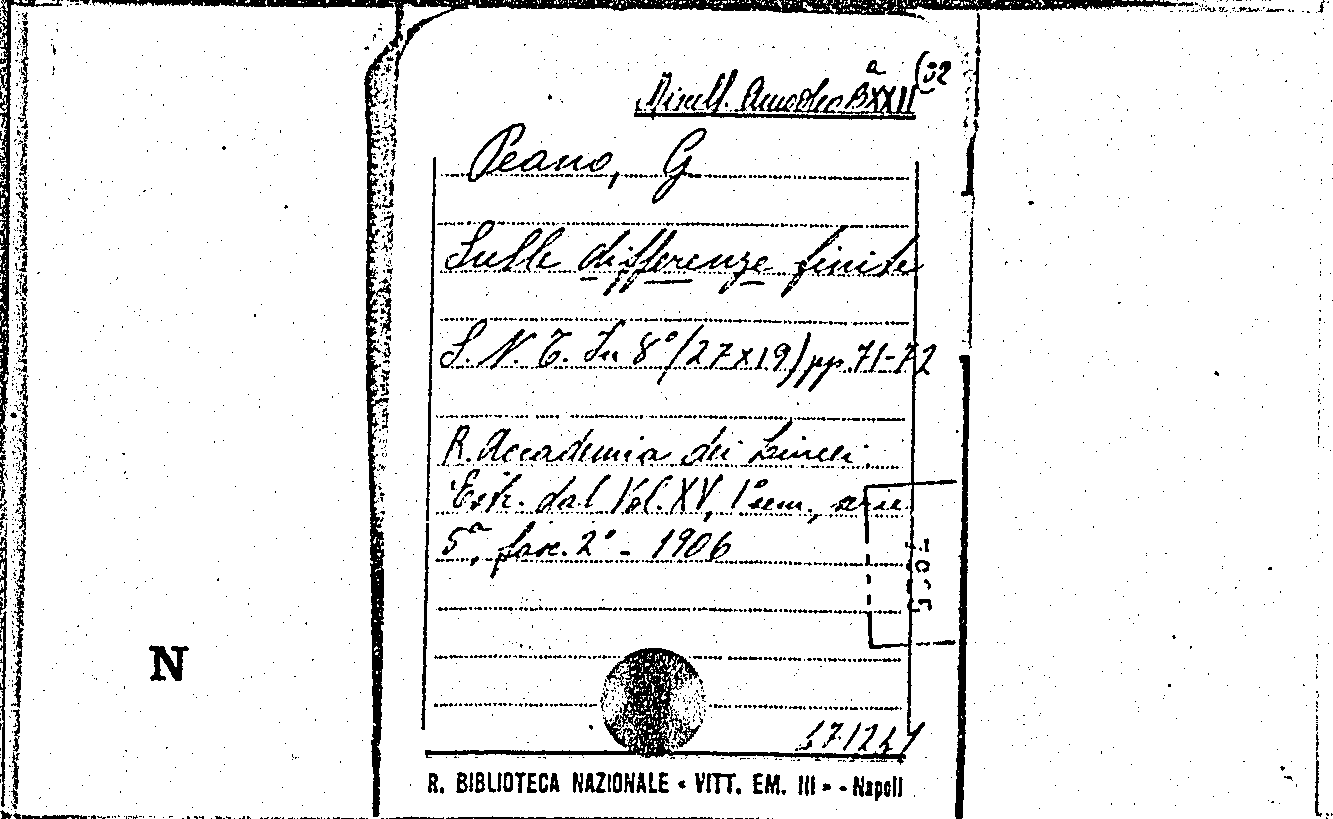 Miscell. Amodeo BXXII a (32
Peano, G
Sulle differenze finite
S. N. T. In 8° (27x19) pp. 71-72
R. Accademia dei Lincei.
Estr. dal Vol. XV, 1° sem., serie
5ª, fasc. 2° - 1906
N
R. BIBLIOTECA NAZIONALE « VITT. EM. III » - Napoli